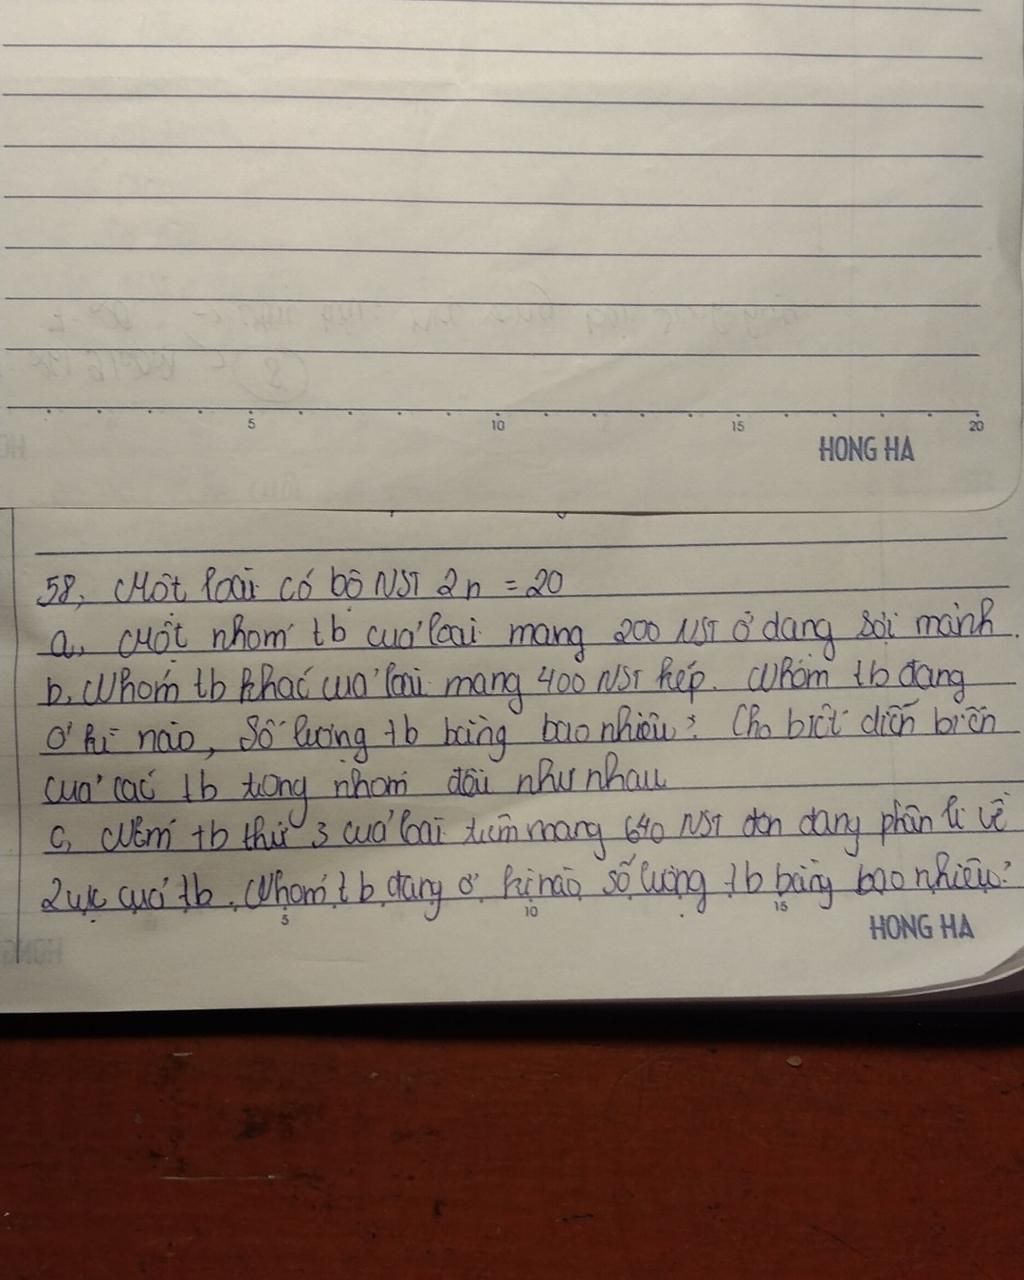 5 10 15 20
HONG HA
58, Một loài có bộ NST 2n = 20
a, Một nhóm tb của loài mang 200 NST ở dạng sợi mảnh.
b, Nhóm tb khác của loài mang 400 NST kép. Nhóm tb đang
ở kì nào, Số lượng tb bằng bao nhiêu? Cho biết diễn biến
của các tb trong nhóm đều như nhau
c, Nhóm tb thứ 3 của loài trên mang 640 NST đơn đang phân li về
2 cực của tb. Nhóm tb đang ở kì nào số lượng tb bằng bao nhiêu?
5 10 15
HONG HA